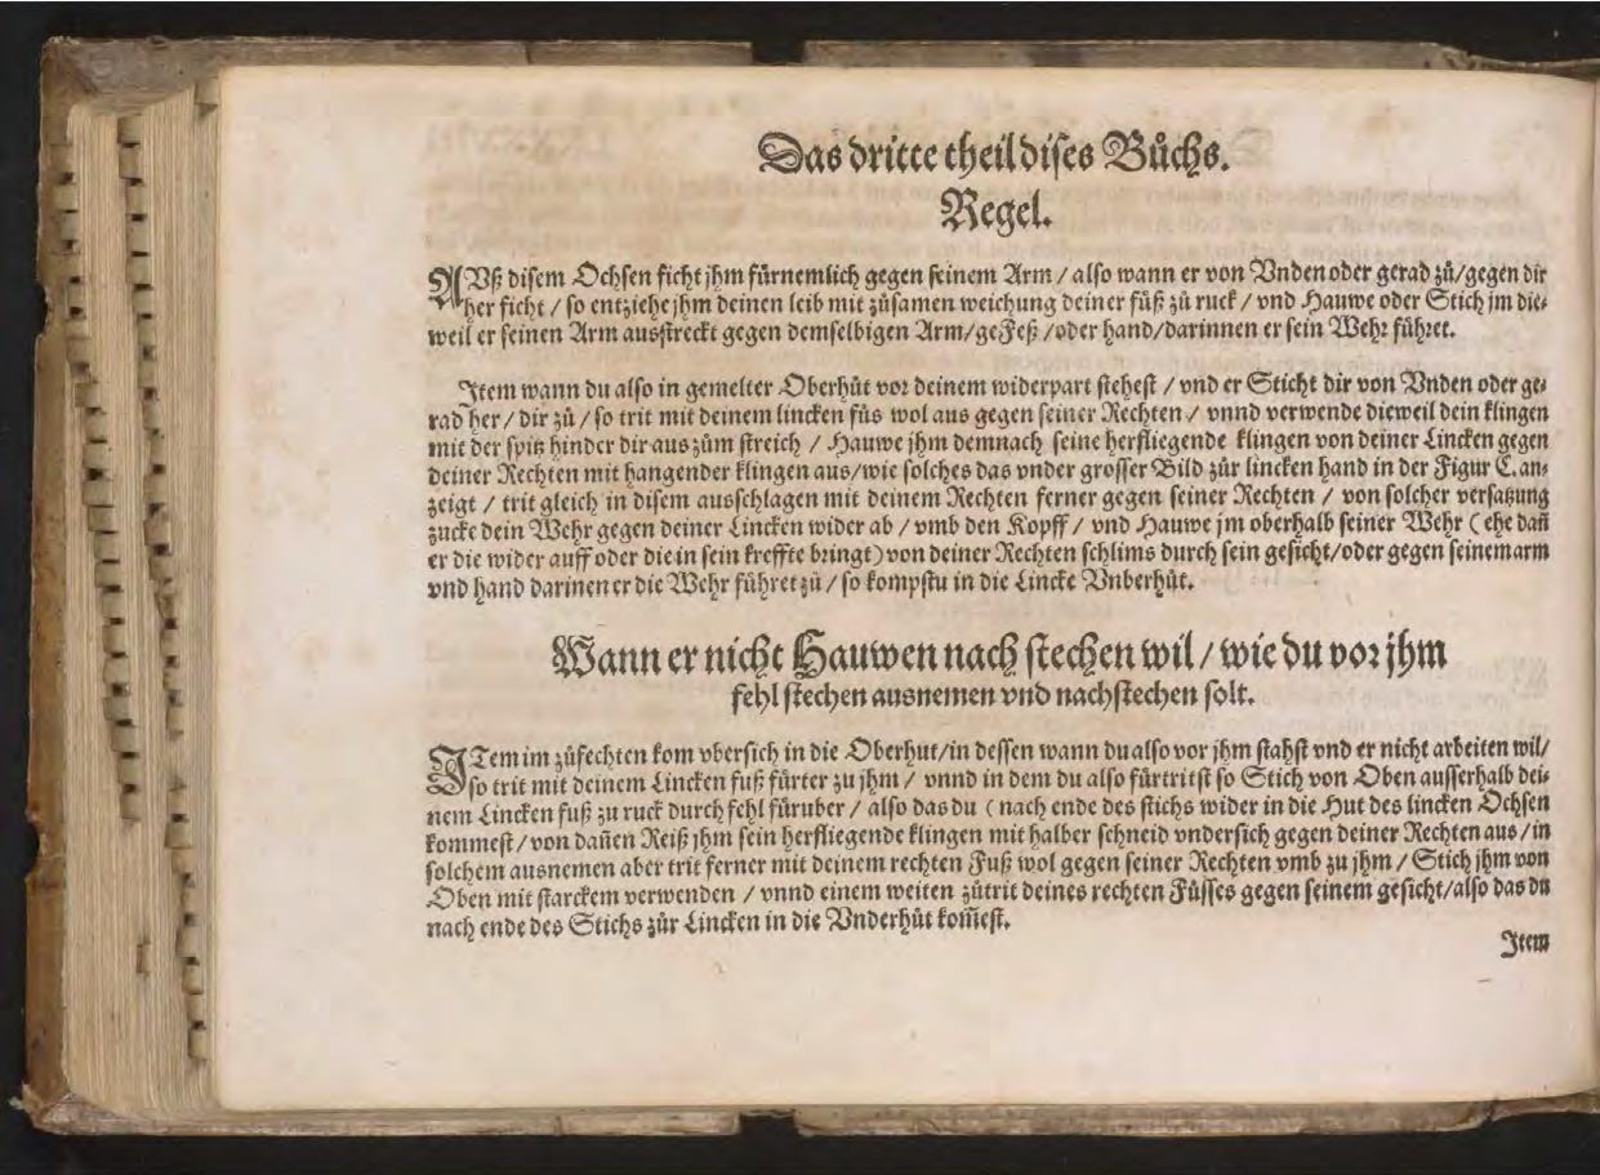 Das dritte theil dises Bůchs.
Regel.
AVß disem Ochsen ficht jhm fürnemlich gegen seinem Arm / also wann er von Vnden oder gerad zů/gegen dir
her ficht / so entziehe jhm deinen leib mit zůsamen weichung deiner füß zů ruck / vnd Hauwe oder Stich jm die-
weil er seinen Arm ausstreckt gegen demselbigen Arm/gefeß/oder hand/darinnen er sein Wehr führet.
Item wann du also in gemelter Oberhůt vor deinem widerpart stehest / vnd er Sticht dir von Vnden oder ge-
rad her / dir zů / so trit mit deinem lincken fůs wol aus gegen seiner Rechten / vnnd verwende dieweil dein klingen
mit der spitz hinder dir aus zům streich / Hauwe jhm demnach seine herfliegende klingen von deiner Lincken gegen
deiner Rechten mit hangender klingen aus/wie solches das vnder grosser Bild zůr lincken hand in der Figur C. an-
zeigt / trit gleich in disem ausschlagen mit deinem Rechten ferner gegen seiner Rechten / von solcher versatzung
zucke dein Wehr gegen deiner Lincken wider ab / vmb den Kopff / vnd Hauwe jm oberhalb seiner Wehr (ehe dañ
er die wider auff oder die in sein kreffte bringt) von deiner Rechten schlims durch sein gesicht/oder gegen seinem arm
vnd hand darinen er die Wehr führet zů / so kompstu in die Lincke Vnberhůt.
Wann er nicht Hauwen nach stechen wil / wie du vor jhm
fehl stechen ausnemen vnd nachstechen solt.
ITem im zůfechten kom vbersich in die Oberhut/in dessen wann du also vor jhm stahst vnd er nicht arbeiten wil/
so trit mit deinem Lincken fuß fürter zu jhm / vnnd in dem du also fürtritst so Stich von Oben ausserhalb dei-
nem Lincken fuß zu ruck durch fehl füruber / also das du (nach ende des stichs wider in die Hut des lincken Ochsen
kommest / von dañen Reiß jhm sein herfliegende klingen mit halber schneid vndersich gegen deiner Rechten aus / in
solchem ausnemen aber trit ferner mit deinem rechten Fuß wol gegen seiner Rechten vmb zu jhm / Stich jhm von
Oben mit starckem verwenden / vnnd einem weiten zůtrit deines rechten Fůsses gegen seinem gesicht/also das du
nach ende des Stichs zůr Lincken in die Vnderhůt kom̃est.
Item